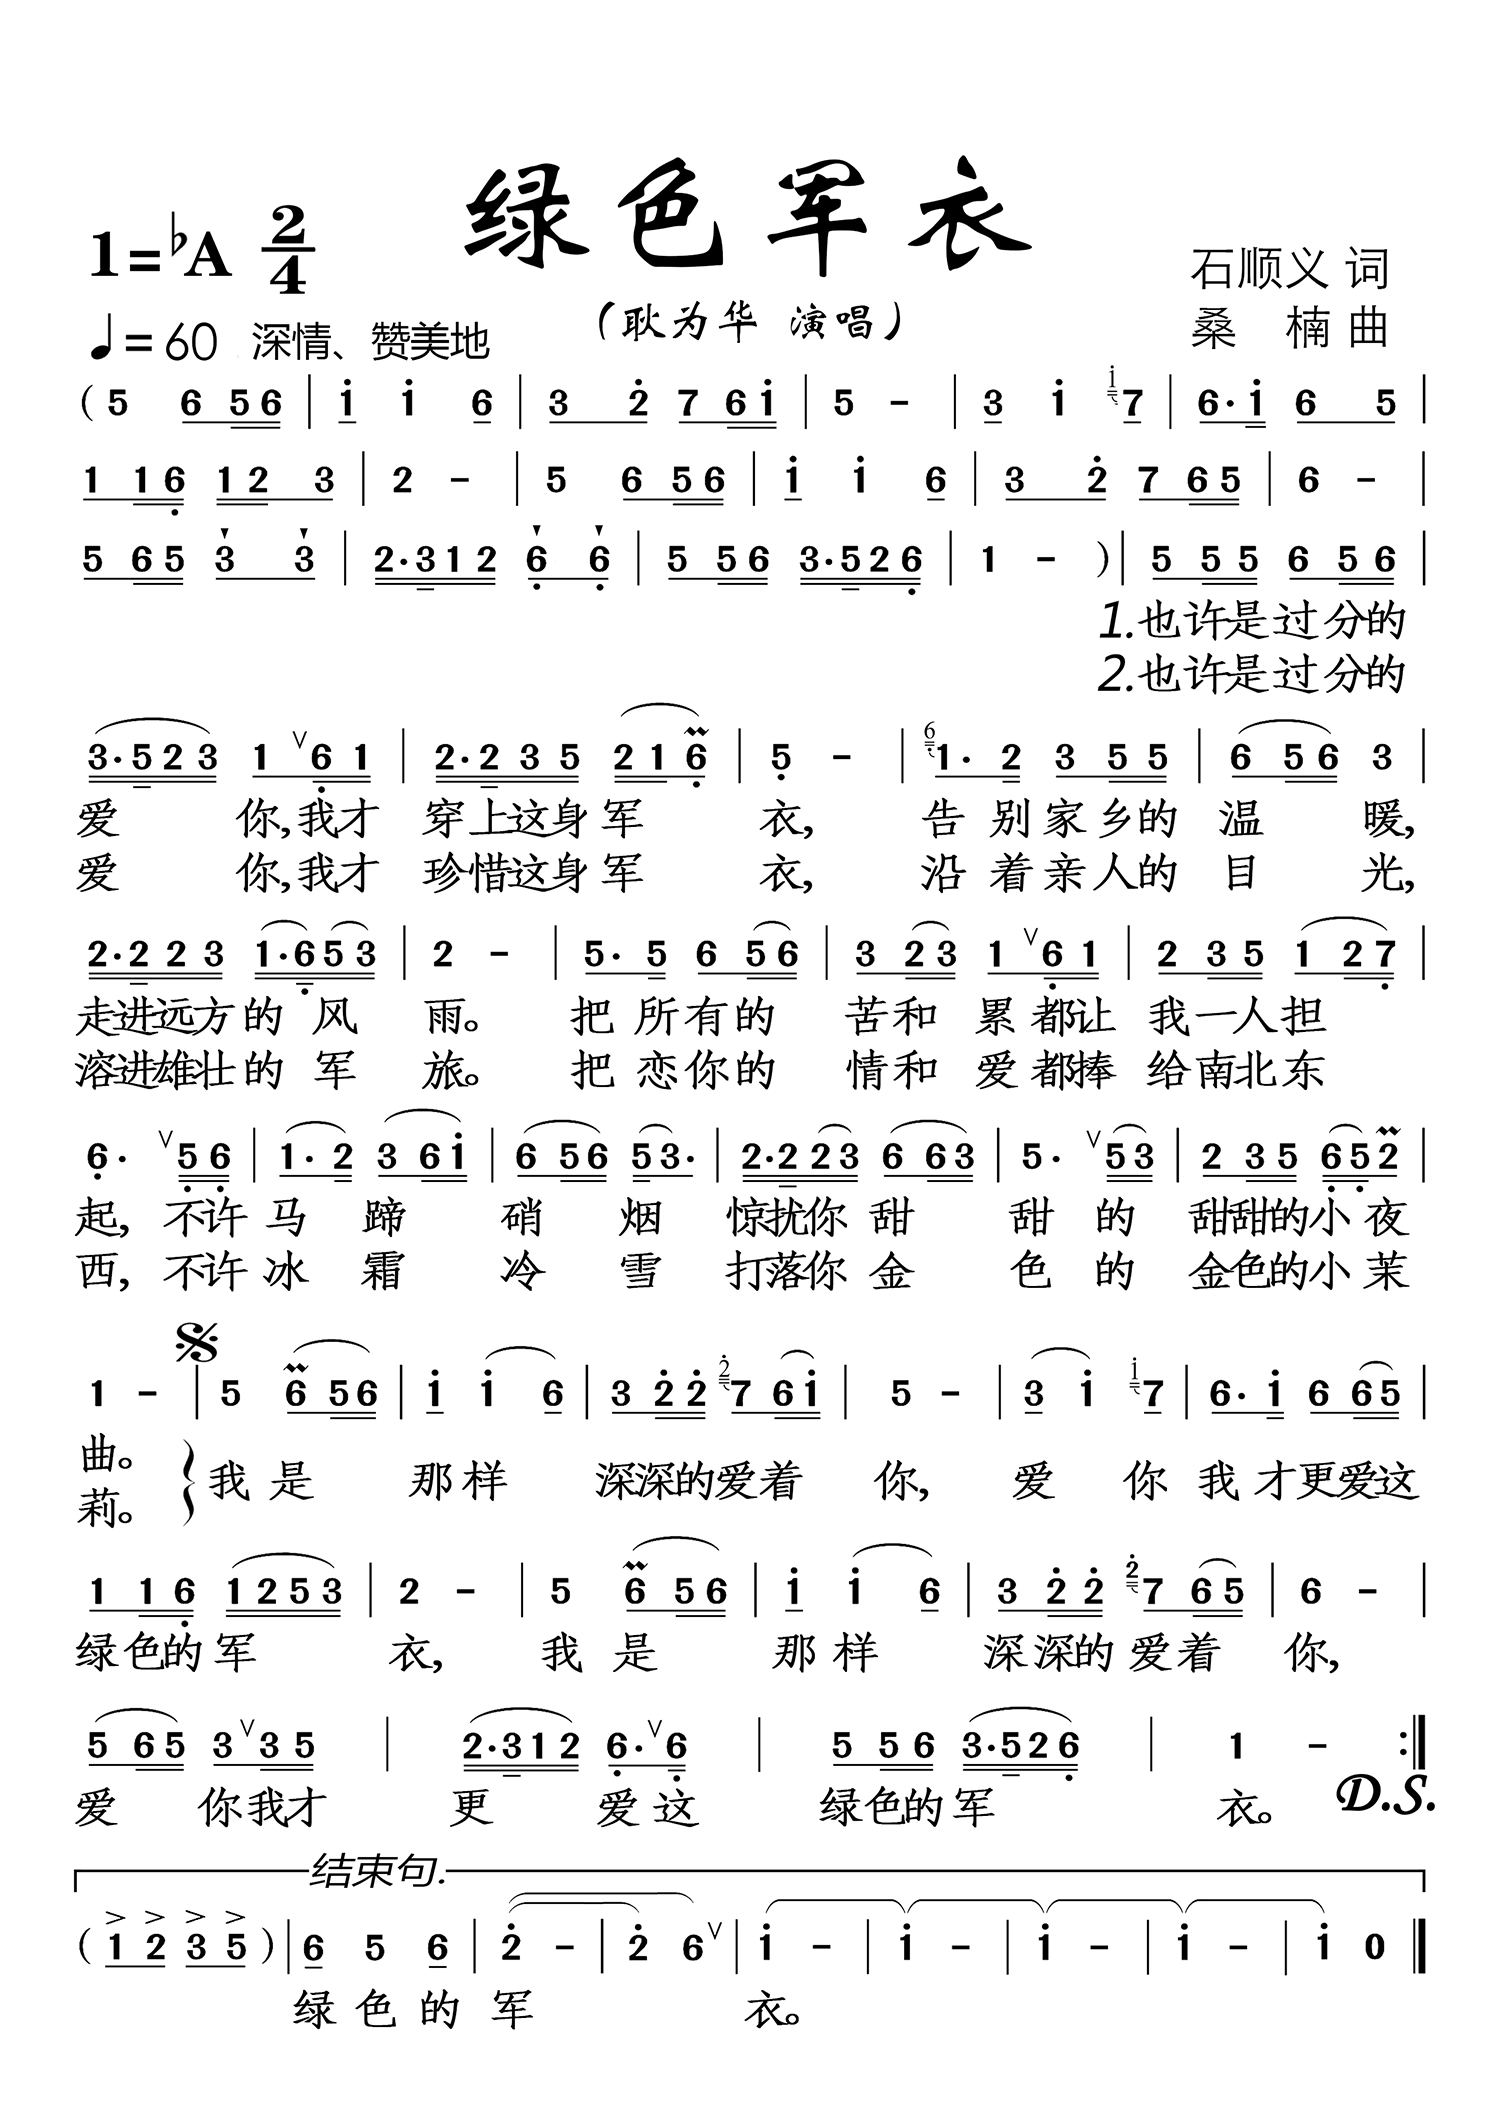 绿色军衣
1=♭A 2/4
石顺义 词
(耿为华 演唱)
桑 楠 曲
♩=60 深情、赞美地
( 5 6 5 6 | i i 6 | 3 2 7 6 i | 5 - | 3 i i 7 | 6· i 6 5 |
1 1 6 1 2 3 | 2 - | 5 6 5 6 | i i 6 | 3 2 7 6 5 | 6 - |
5 6 5 3 3 | 2·3 1 2 6 6 | 5 5 6 3·5 2 6 | 1 - ) | 5 5 5 6 5 6 |
1.也许是过分的
2.也许是过分的
3·5 2 3 1 ∨6 1 | 2·2 3 5 2 1 6 | 5 - | 6 1· 2 3 5 5 | 6 5 6 3 |
爱 你,我才 穿上这身军 衣, 告别家乡的 温 暖,
爱 你,我才 珍惜这身军 衣, 沿着亲人的 目 光,
2·2 2 3 1·6 5 3 | 2 - | 5· 5 6 5 6 | 3 2 3 1 ∨6 1 | 2 3 5 1 2 7 |
走进远方的 风 雨。 把所有的 苦和 累都让 我一人担
溶进雄壮的 军 旅。 把恋你的 情和 爱都捧 给南北东
6· ∨5 6 | 1· 2 3 6 i | 6 5 6 5 3· | 2·2 2 3 6 6 3 | 5· ∨5 3 | 2 3 5 6 5 2 |
起, 不许 马 蹄 硝 烟 惊扰你 甜 甜 的 甜甜的小夜
西, 不许 冰 霜 冷 雪 打落你 金 色 的 金色的小茉
1 - | 5 6 5 6 | i i 6 | 3 2 2 2 7 6 i | 5 - | 3 i i 7 | 6· i 6 6 5 |
曲。
我是 那样 深深的爱着 你, 爱 你 我 才更爱这
莉。
1 1 6 1 2 5 3 | 2 - | 5 6 5 6 | i i 6 | 3 2 2 2 7 6 5 | 6 - |
绿色的军 衣, 我是 那样 深深的爱着 你,
5 6 5 3∨3 5 | 2·3 1 2 6·∨6 | 5 5 6 3·5 2 6 | 1 - :‖
爱 你我才 更 爱这 绿色的军 衣。 D.S.
结束句.
( 1 2 3 5 ) | 6 5 6 | 2 - | 2 6∨ | i - | i - | i - | i - | i 0 ‖
绿色的 军 衣。